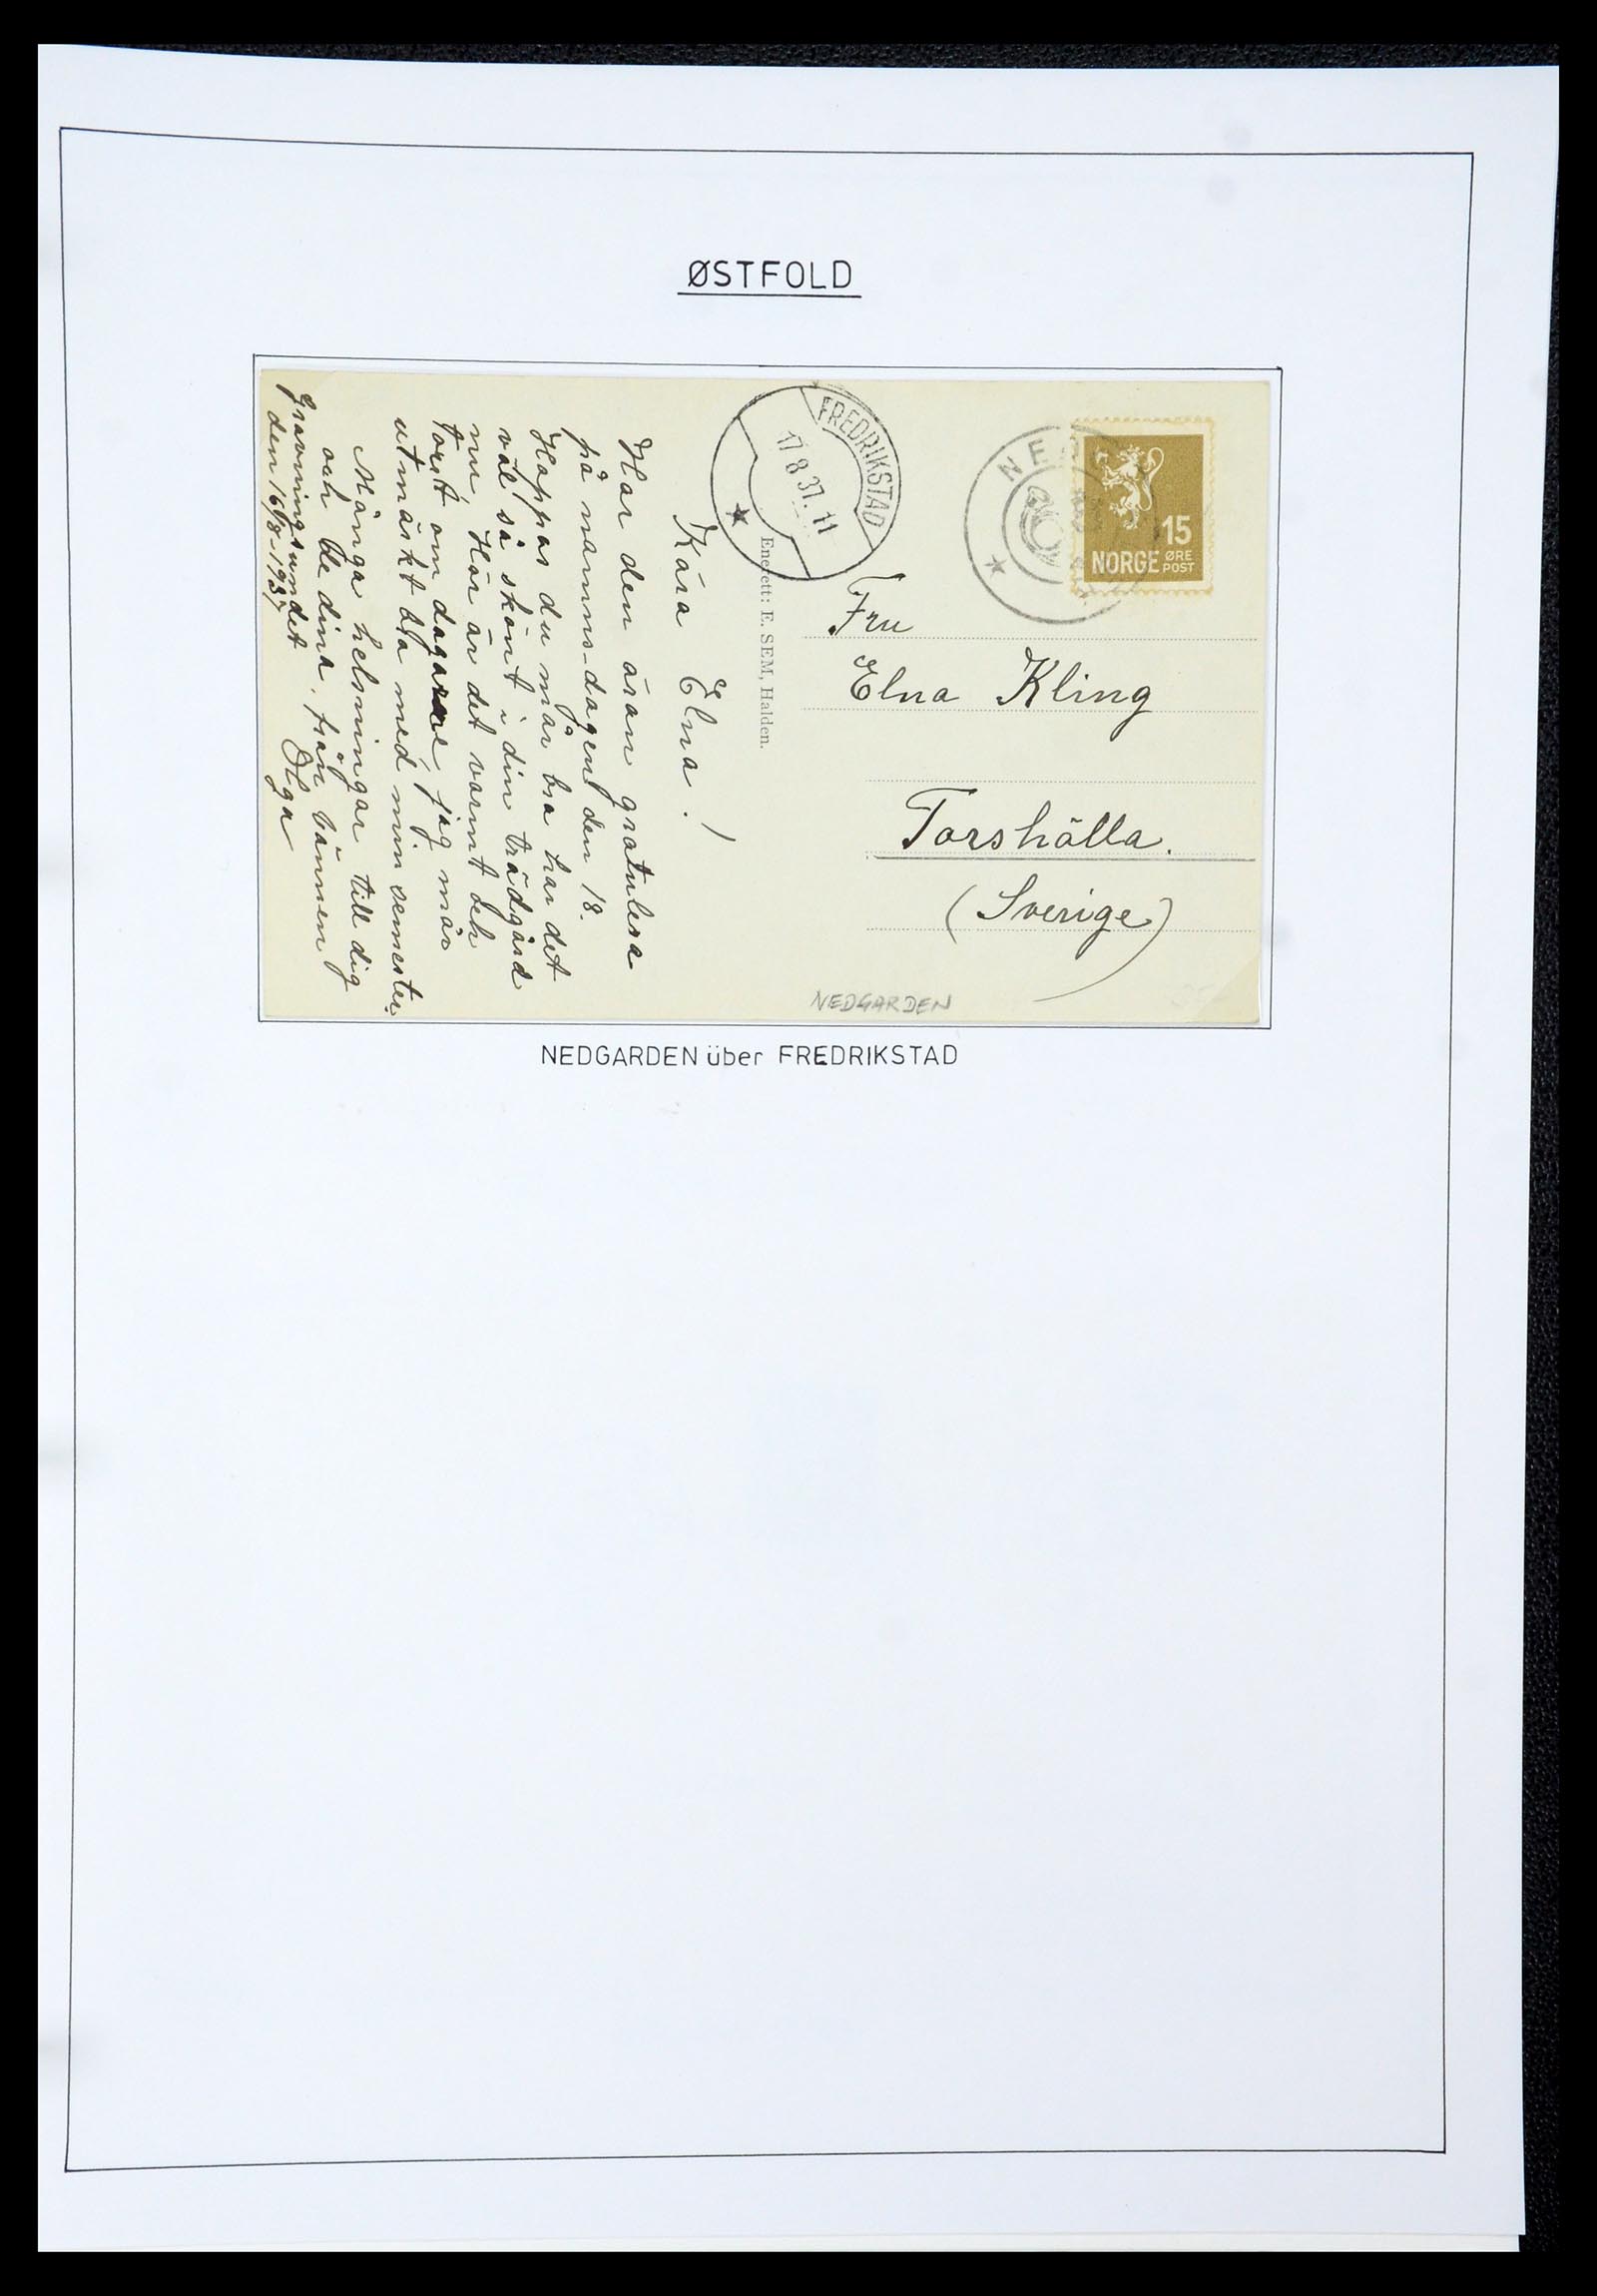 ØSTFOLD
NE
15
NORGE ØRE POST
FREDRIKSTAD
17 8 37. 11
Enerett: E. SEM, Halden.
Fru
Elna Kling
Torshälla.
(Sverige)
NEDGARDEN
Kära Elna!
Har den äran gratulera
på namns-dagen den 18.
Hoppas du mår bra har det
väl så skönt i din trädgård
nu, Här är det varmt och
torrt om dagarne, jag mår
utmärkt bra med min semester.
Många helsningar till dig
och de dina, från vännen
Olga
Gravningsundet
den 16/8-1937
NEDGARDEN über FREDRIKSTAD